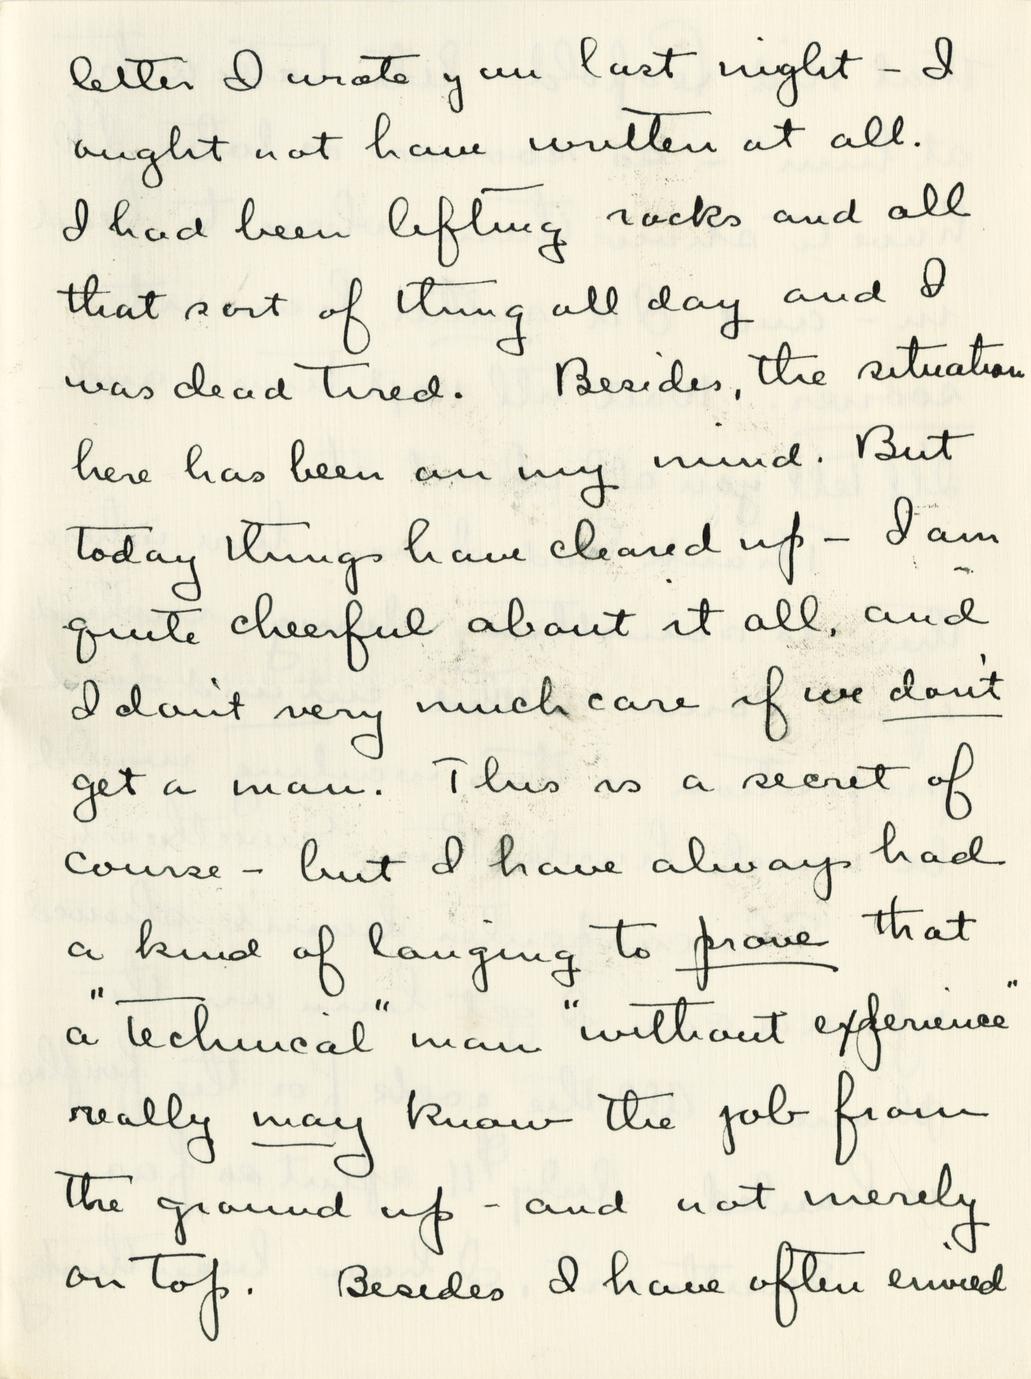 letter I wrote you last night – I
ought not have written at all.
I had been lifting rocks and all
that sort of thing all day and I
was dead tired. Besides, the situation
here has been on my mind. But
today things have cleared up – I am
quite cheerful about it all, and
I don't very much care if we don't
get a man. This is a secret of
course – but I have always had
a kind of longing to prove that
a "technical" man "without experience"
really may know the job from
the ground up – and not merely
on top. Besides I have often envied